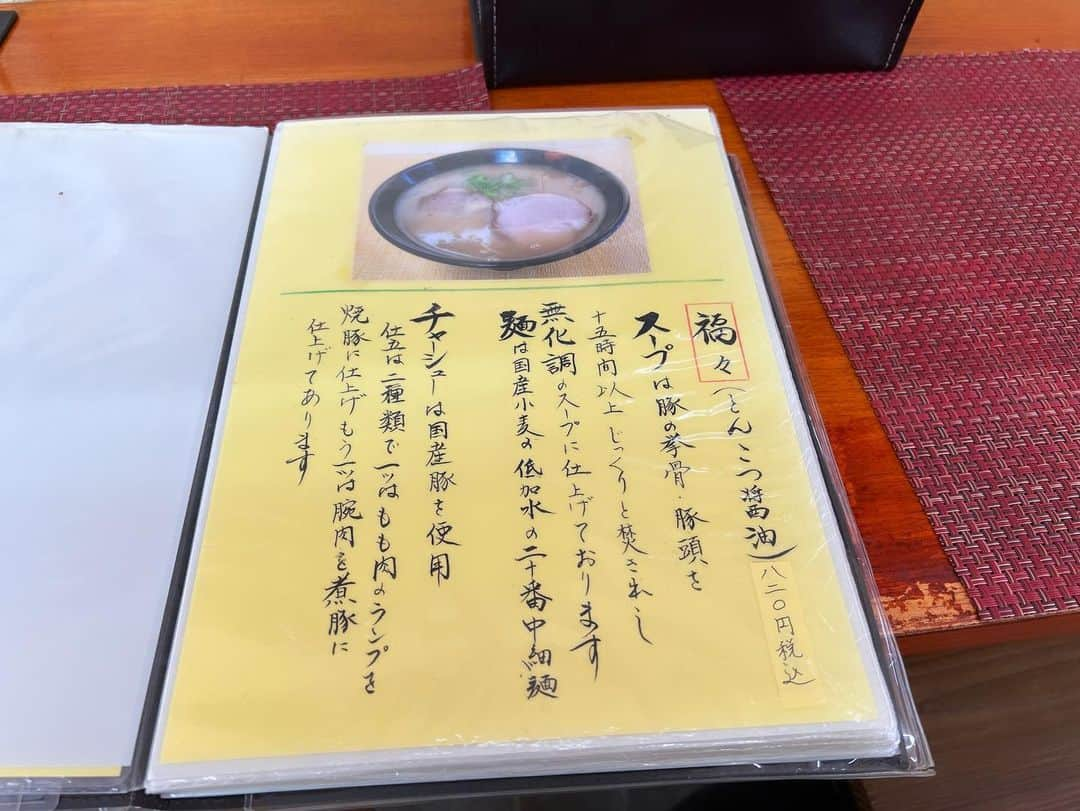 福々(とんこつ醤油)八二〇円税込
スープは豚の拳骨・豚頭を
十五時間以上じっくりと焚きれ〜し
無化調のスープに仕上げております
麺は国産小麦の低加水の二十番中細麺
チャーシューは国産豚を使用
仕立は二種類で一ツはもも肉のランプを
焼豚に仕上げもう一ツは腕肉を煮豚に
仕上げてあります